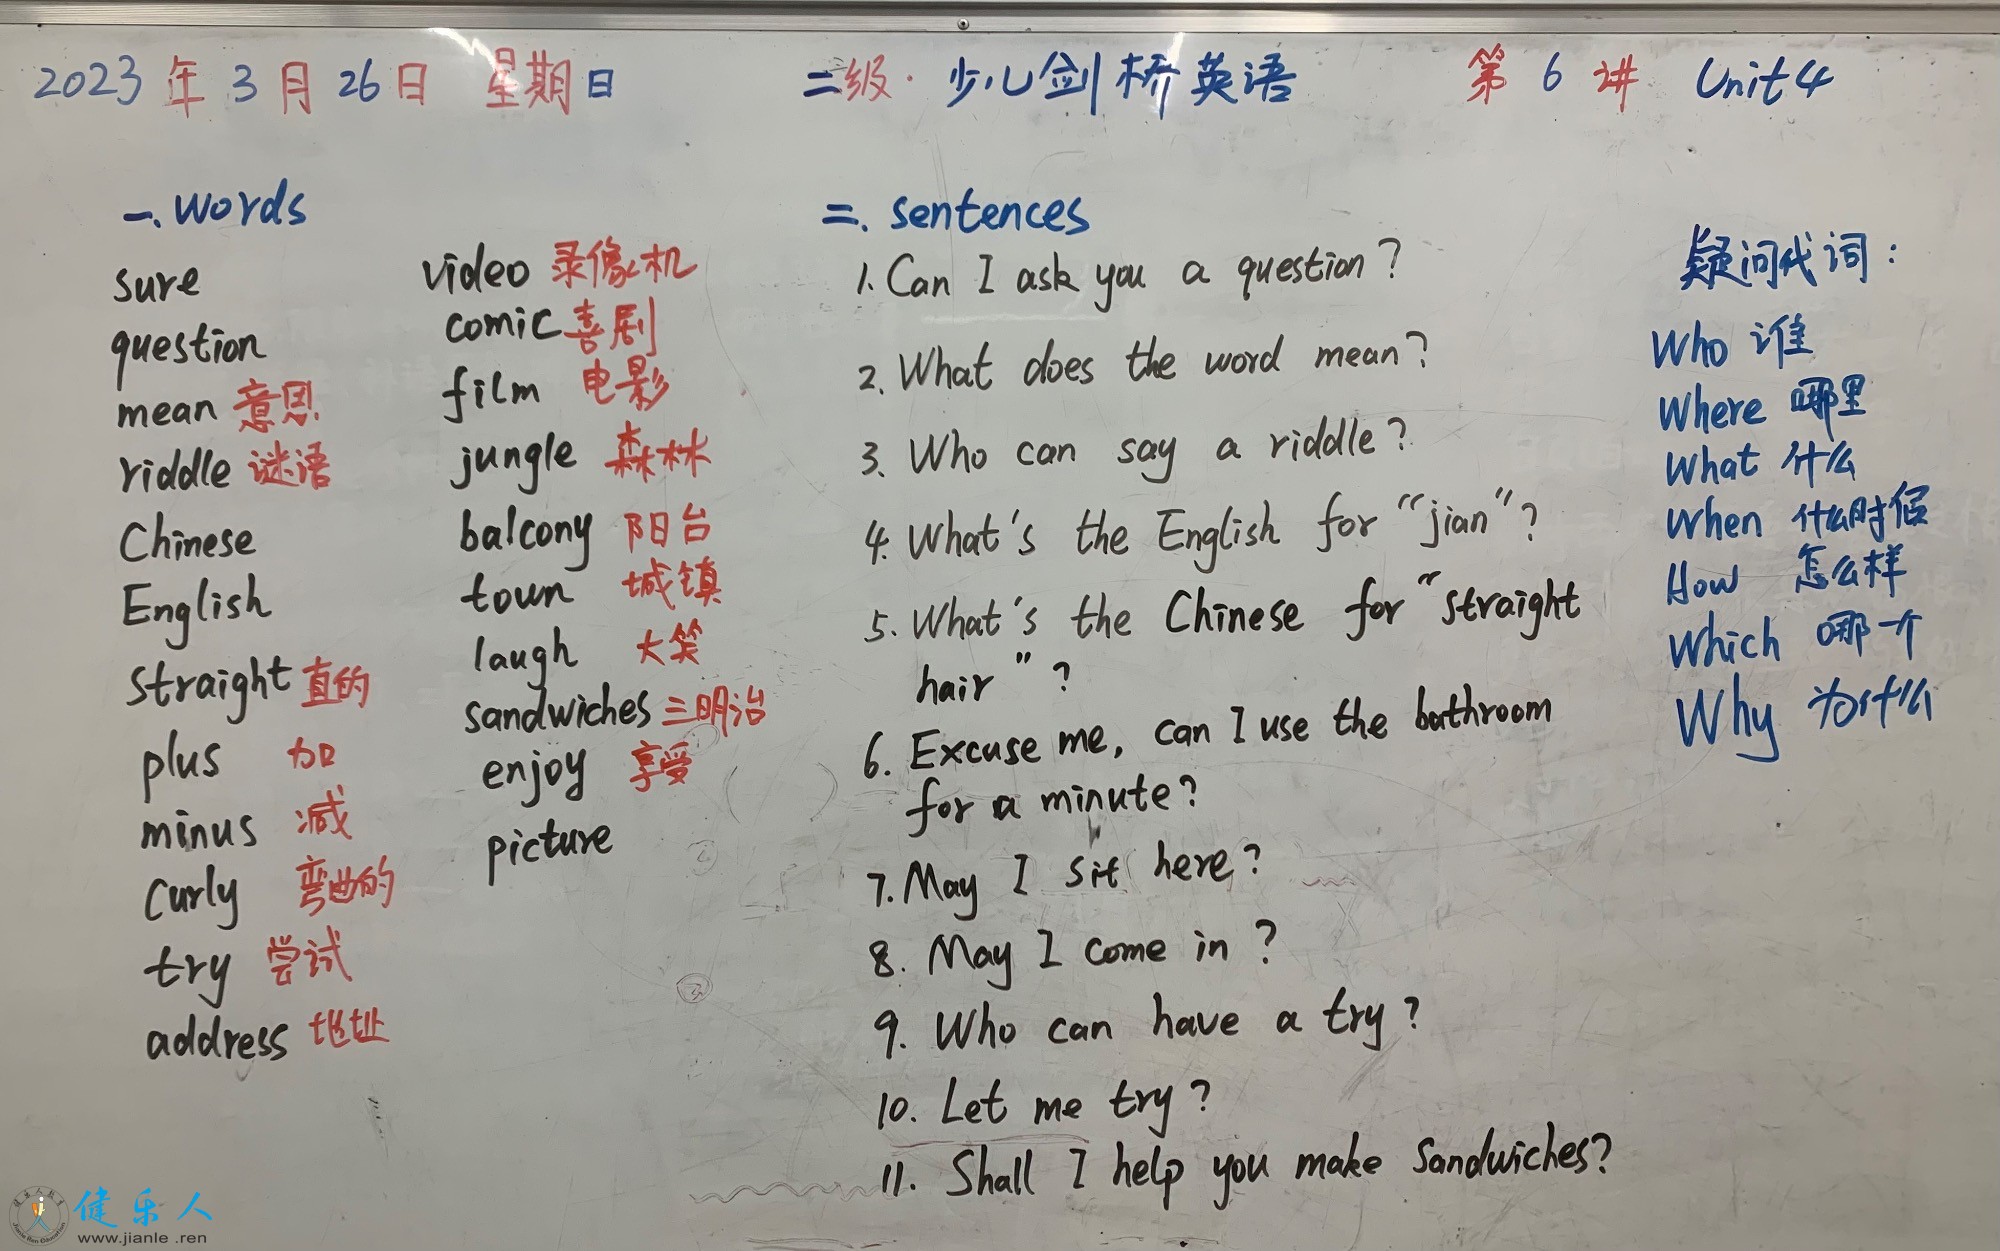 2023年3月26日 星期日 二级·少儿剑桥英语 第6讲 Unit 4
一. words
sure
question
mean 意思
riddle 谜语
Chinese
English
straight 直的
plus 加
minus 减
curly 弯曲的
try 尝试
address 地址
video 录像机
comic 喜剧
film 电影
jungle 森林
balcony 阳台
town 城镇
laugh 大笑
sandwiches 三明治
enjoy 享受
picture
二. sentences
1. Can I ask you a question?
2. What does the word mean?
3. Who can say a riddle?
4. What's the English for "jian"?
5. What's the Chinese for "straight
hair"?
6. Excuse me, can I use the bathroom
for a minute?
7. May I sit here?
8. May I come in?
9. Who can have a try?
10. Let me try?
11. Shall I help you make sandwiches?
疑问代词:
Who 谁
Where 哪里
What 什么
When 什么时候
How 怎么样
Which 哪一个
Why 为什么
健乐人
www.jianle.ren